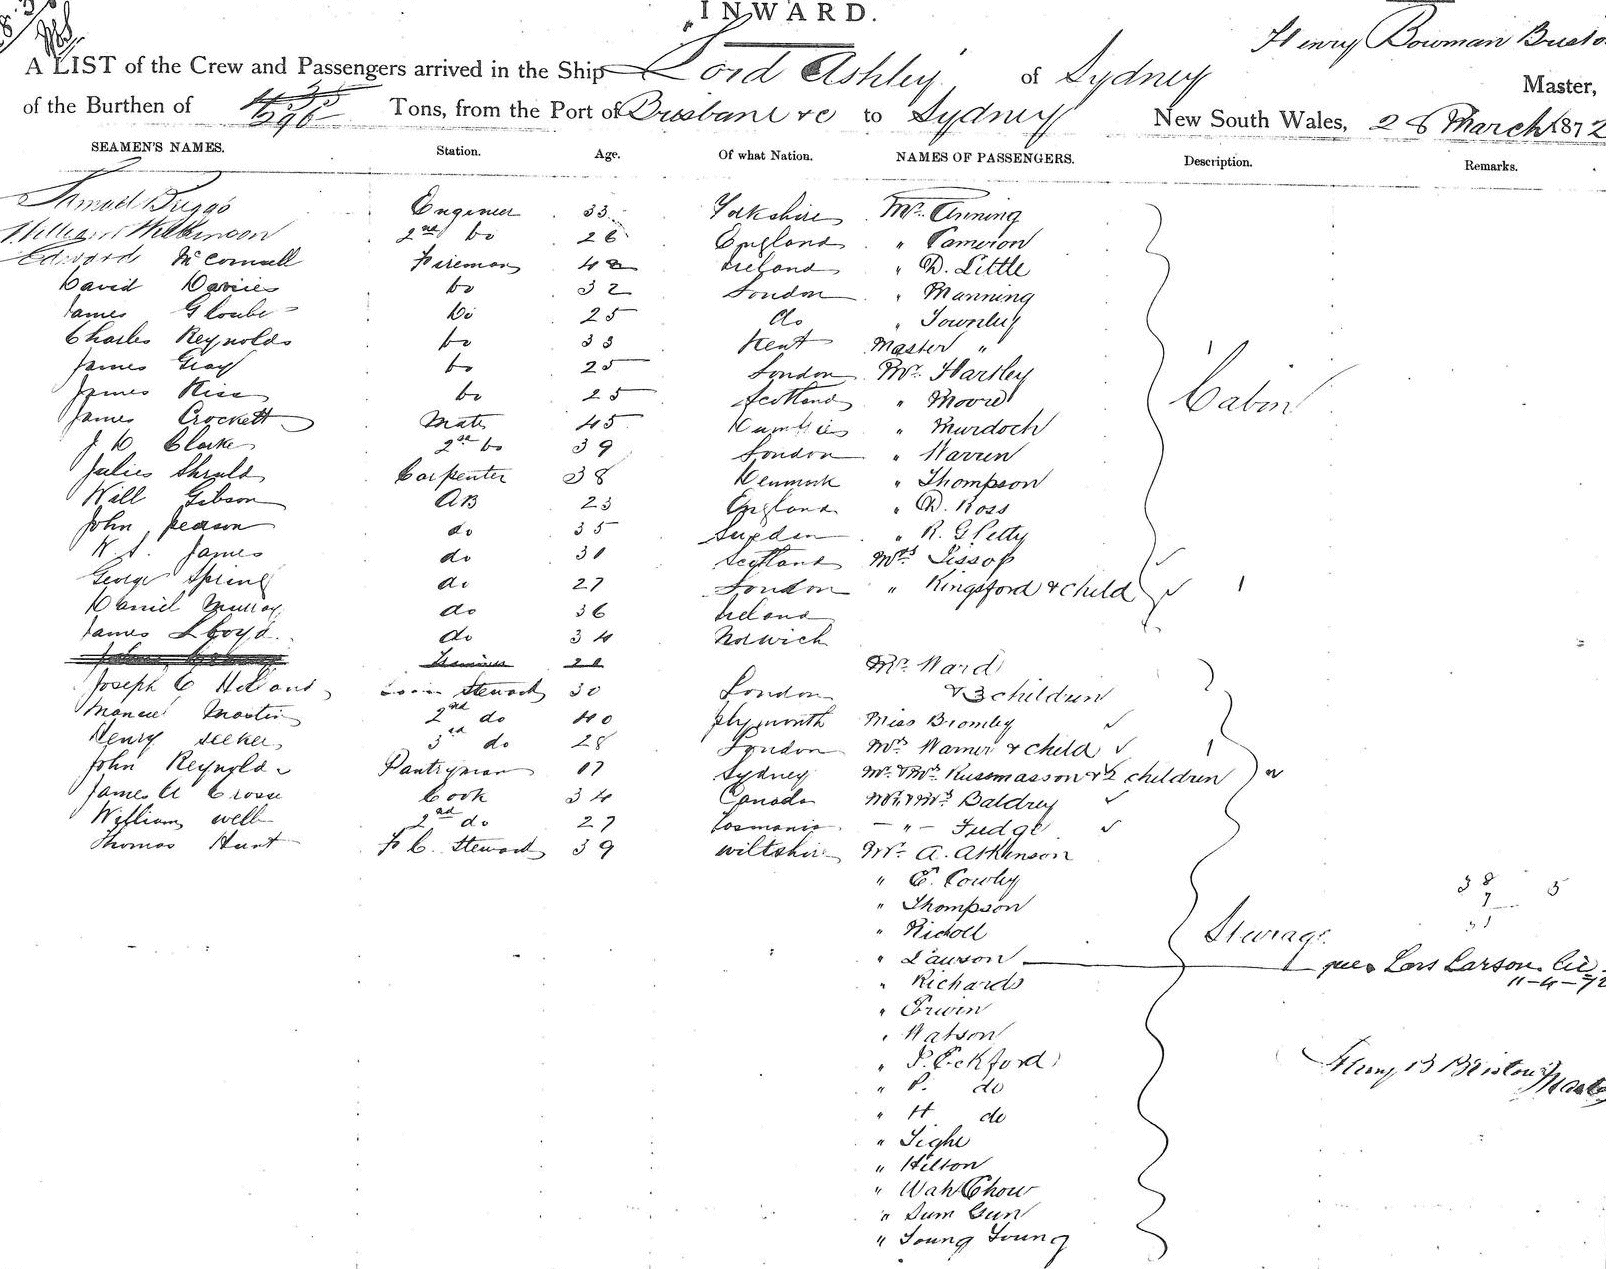 INWARD.
Henry Bowman Bristo
A LIST of the Crew and Passengers arrived in the Ship Lord Ashley of Sydney Master,
of the Burthen of 296 Tons, from the Port of Brisbane &c to Sydney New South Wales, 28 March 1872
SEAMEN'S NAMES. Station. Age. Of what Nation. NAMES OF PASSENGERS. Description. Remarks.
Samuel Briggs Engineer 33 Yorkshire Mr. Anning
William Wilkinson 2nd Do 26 England " Cameron
Edward McConnell Fireman 42 Ireland " D. Little
David Davies Do 32 London " Manning
James Do 25 do " Townley
Charles Reynolds Do 33 Kent Master "
James Gray Do 25 London Mr. Hartley
James Do 25 Scotland " Moore Cabin
James Crockett Mate 45 " Murdoch
J. D. Clarke 2nd Do 39 London " Warren
Julies Carpenter 38 Denmark " Thompson
Will Gibson AB 23 England " D. Ross
John Pearson do 35 Sweden " R. G Petty
James do 30 Scotland Mrs. Jissop
George Spring do 27 London " Kingsford & child
Daniel Murray do 36 Ireland
James Lloyd do 34 Norwich
Mr. Ward
Joseph C Steward 30 London & 3 children
Manuel Martin 2nd do 40 plymouth Miss Bromley
Henry 3rd do 28 London Mrs Warner & child
John Reynolds Pantryman 17 Sydney Mr. & Mrs. & 2 children
James A Crosse Cook 34 Canada Mr. & Mrs Baldry
William well 2nd do 27 Tasmania - " - Fudge
Thomas Hunt F C. Steward 39 wiltshire Mr. A. Atkinson
" E. Cowley
" Thompson
" Ridoll
Steerage
" Lawson per Lars Larson
11-4-72
" Richards
" Erwin
" Watson
" J. Eckford
Henry B Bristow Master
" P. do
" H do
" Tighe
" Hilton
" Wah Chow
" Sum Gun
" Young Young